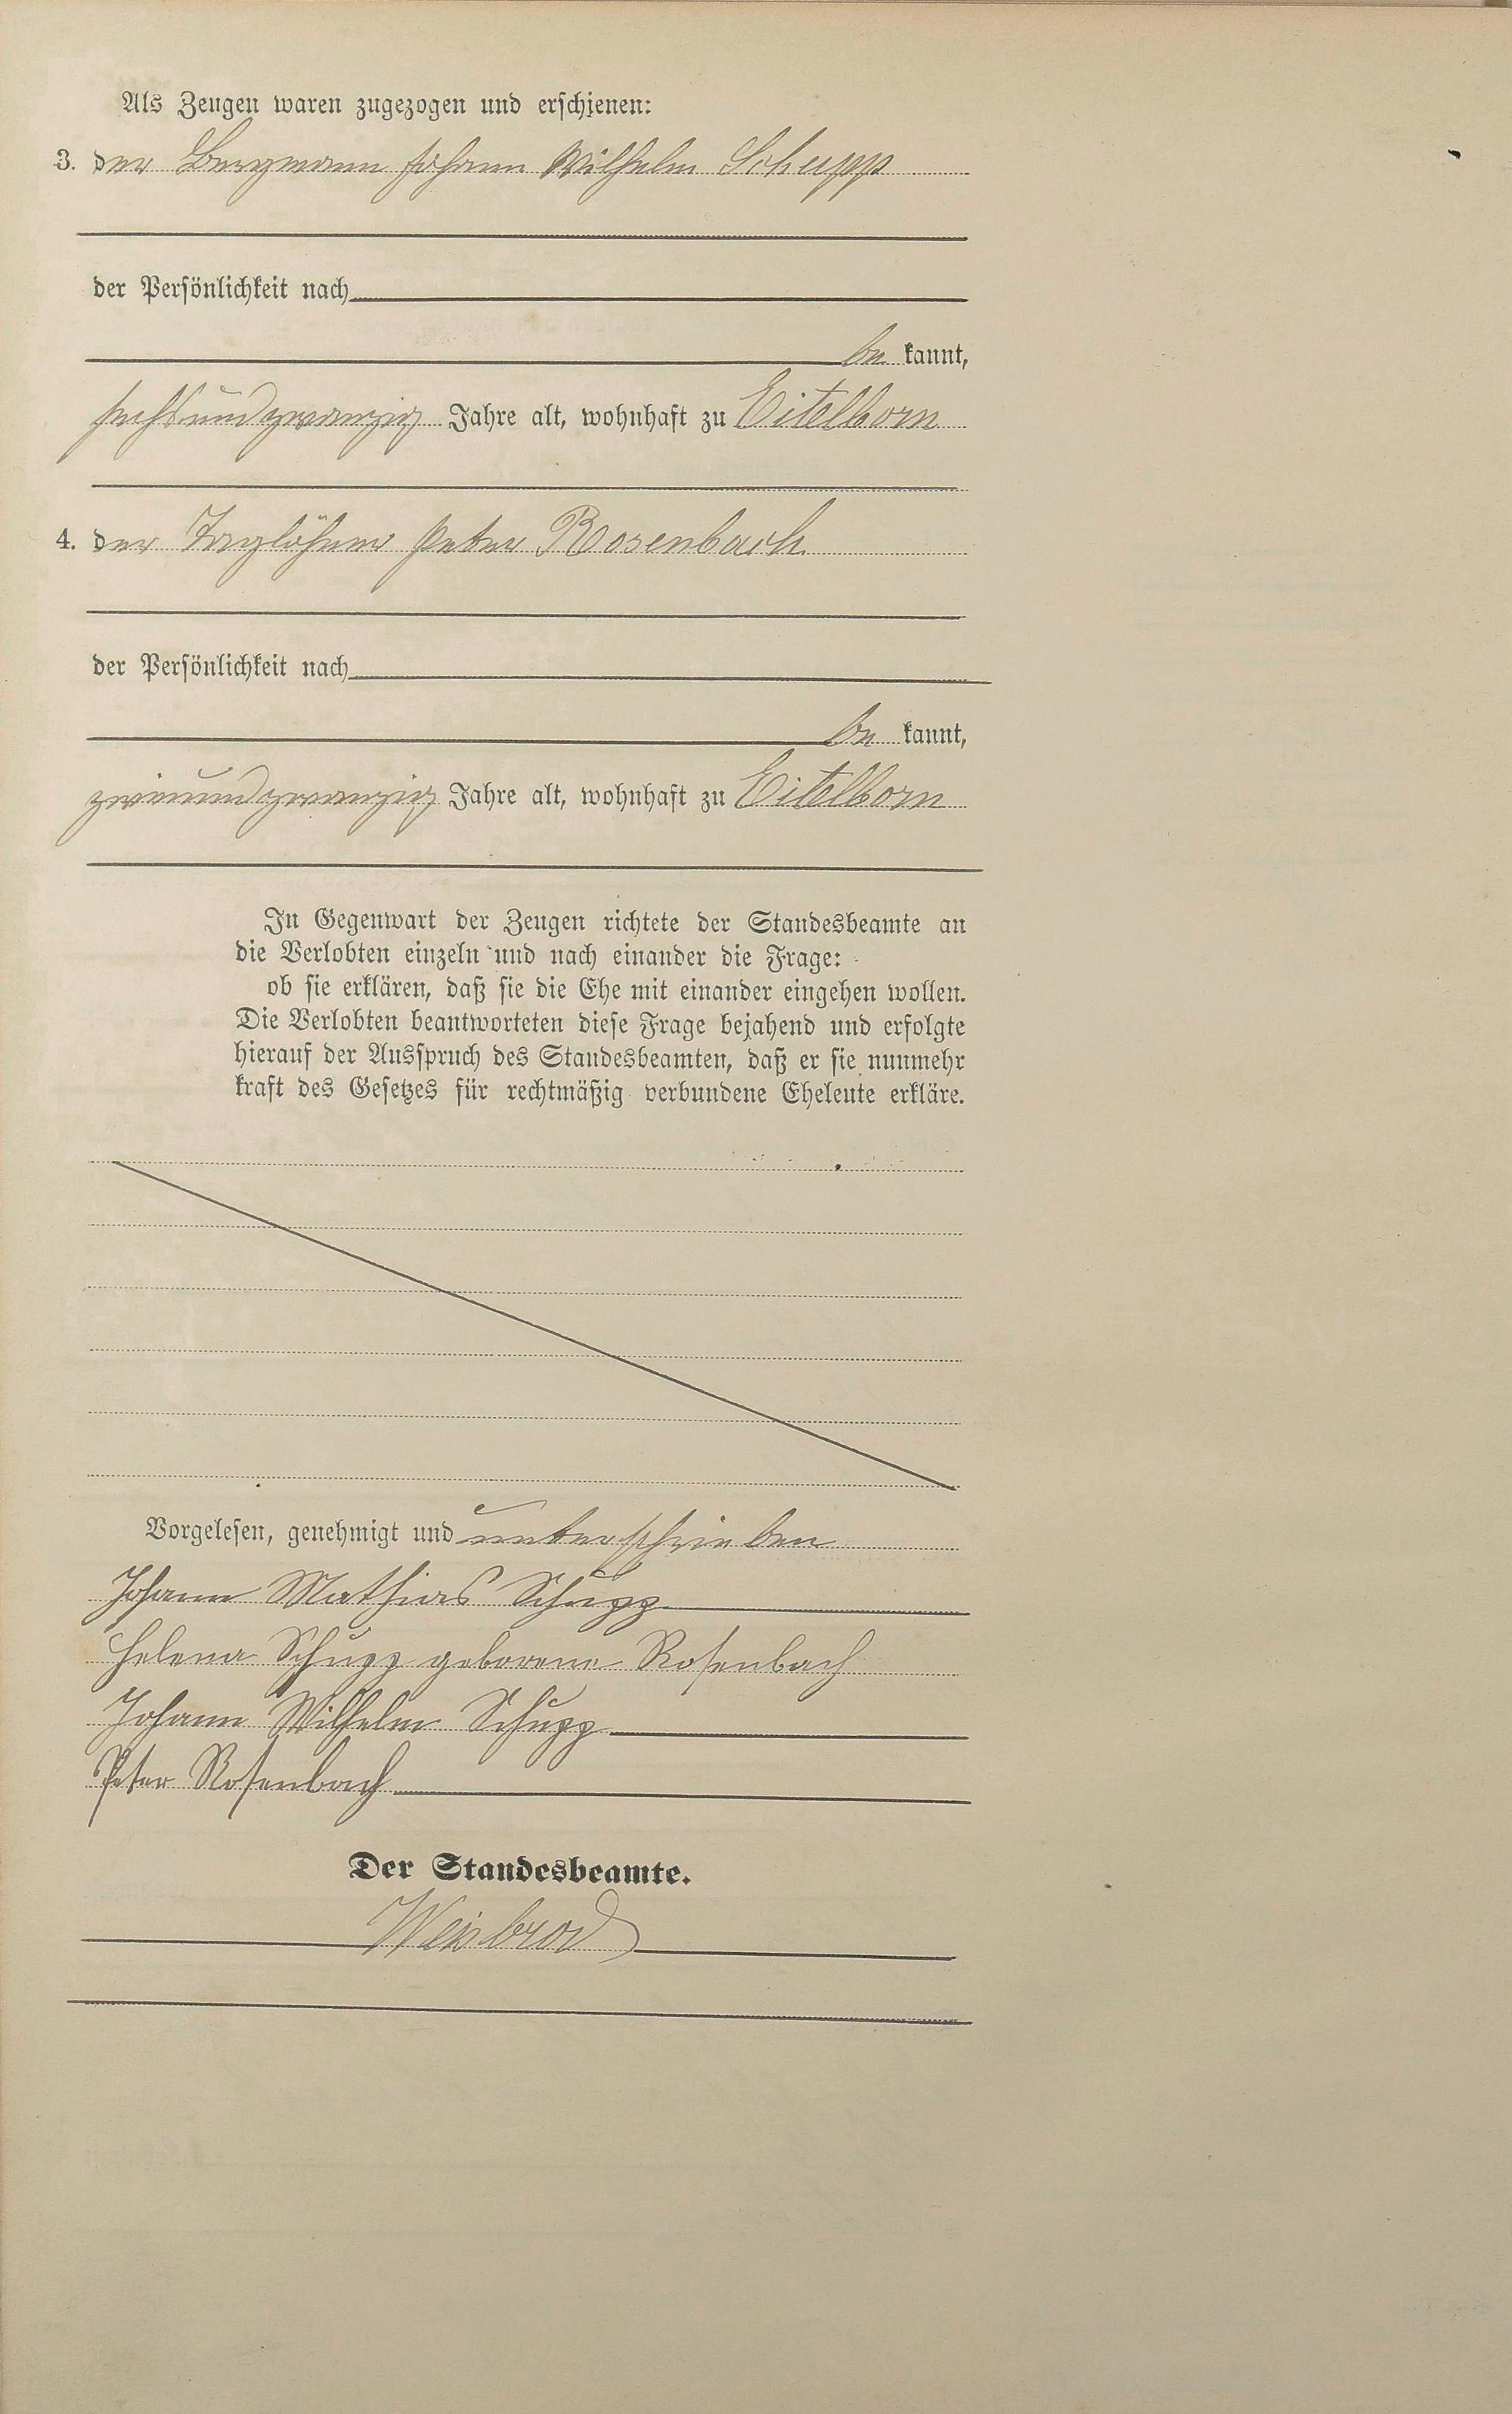 Als Zeugen waren zugezogen und erschienen:
3. der Bergmann Johann Wilhelm Schupp
der Persönlichkeit nach
be kannt,
sechsundzwanzig Jahre alt, wohnhaft zu Eitelborn
4. der Taglöhner Peter Rosenbach
der Persönlichkeit nach
be kannt,
zweiundzwanzig Jahre alt, wohnhaft zu Eitelborn
In Gegenwart der Zeugen richtete der Standesbeamte an
die Verlobten einzeln und nach einander die Frage:
ob sie erklären, daß sie die Ehe mit einander eingehen wollen.
Die Verlobten beantworteten diese Frage bejahend und erfolgte
hierauf der Ausspruch des Standesbeamten, daß er sie nunmehr
kraft des Gesetzes für rechtmäßig verbundene Eheleute erkläre.
Vorgelesen, genehmigt und unterschrieben
Johann Mathias Schupp
Helena Schupp geborene Rosenbach
Johann Wilhelm Schupp
Peter Rosenbach
Der Standesbeamte.
Weisbrod